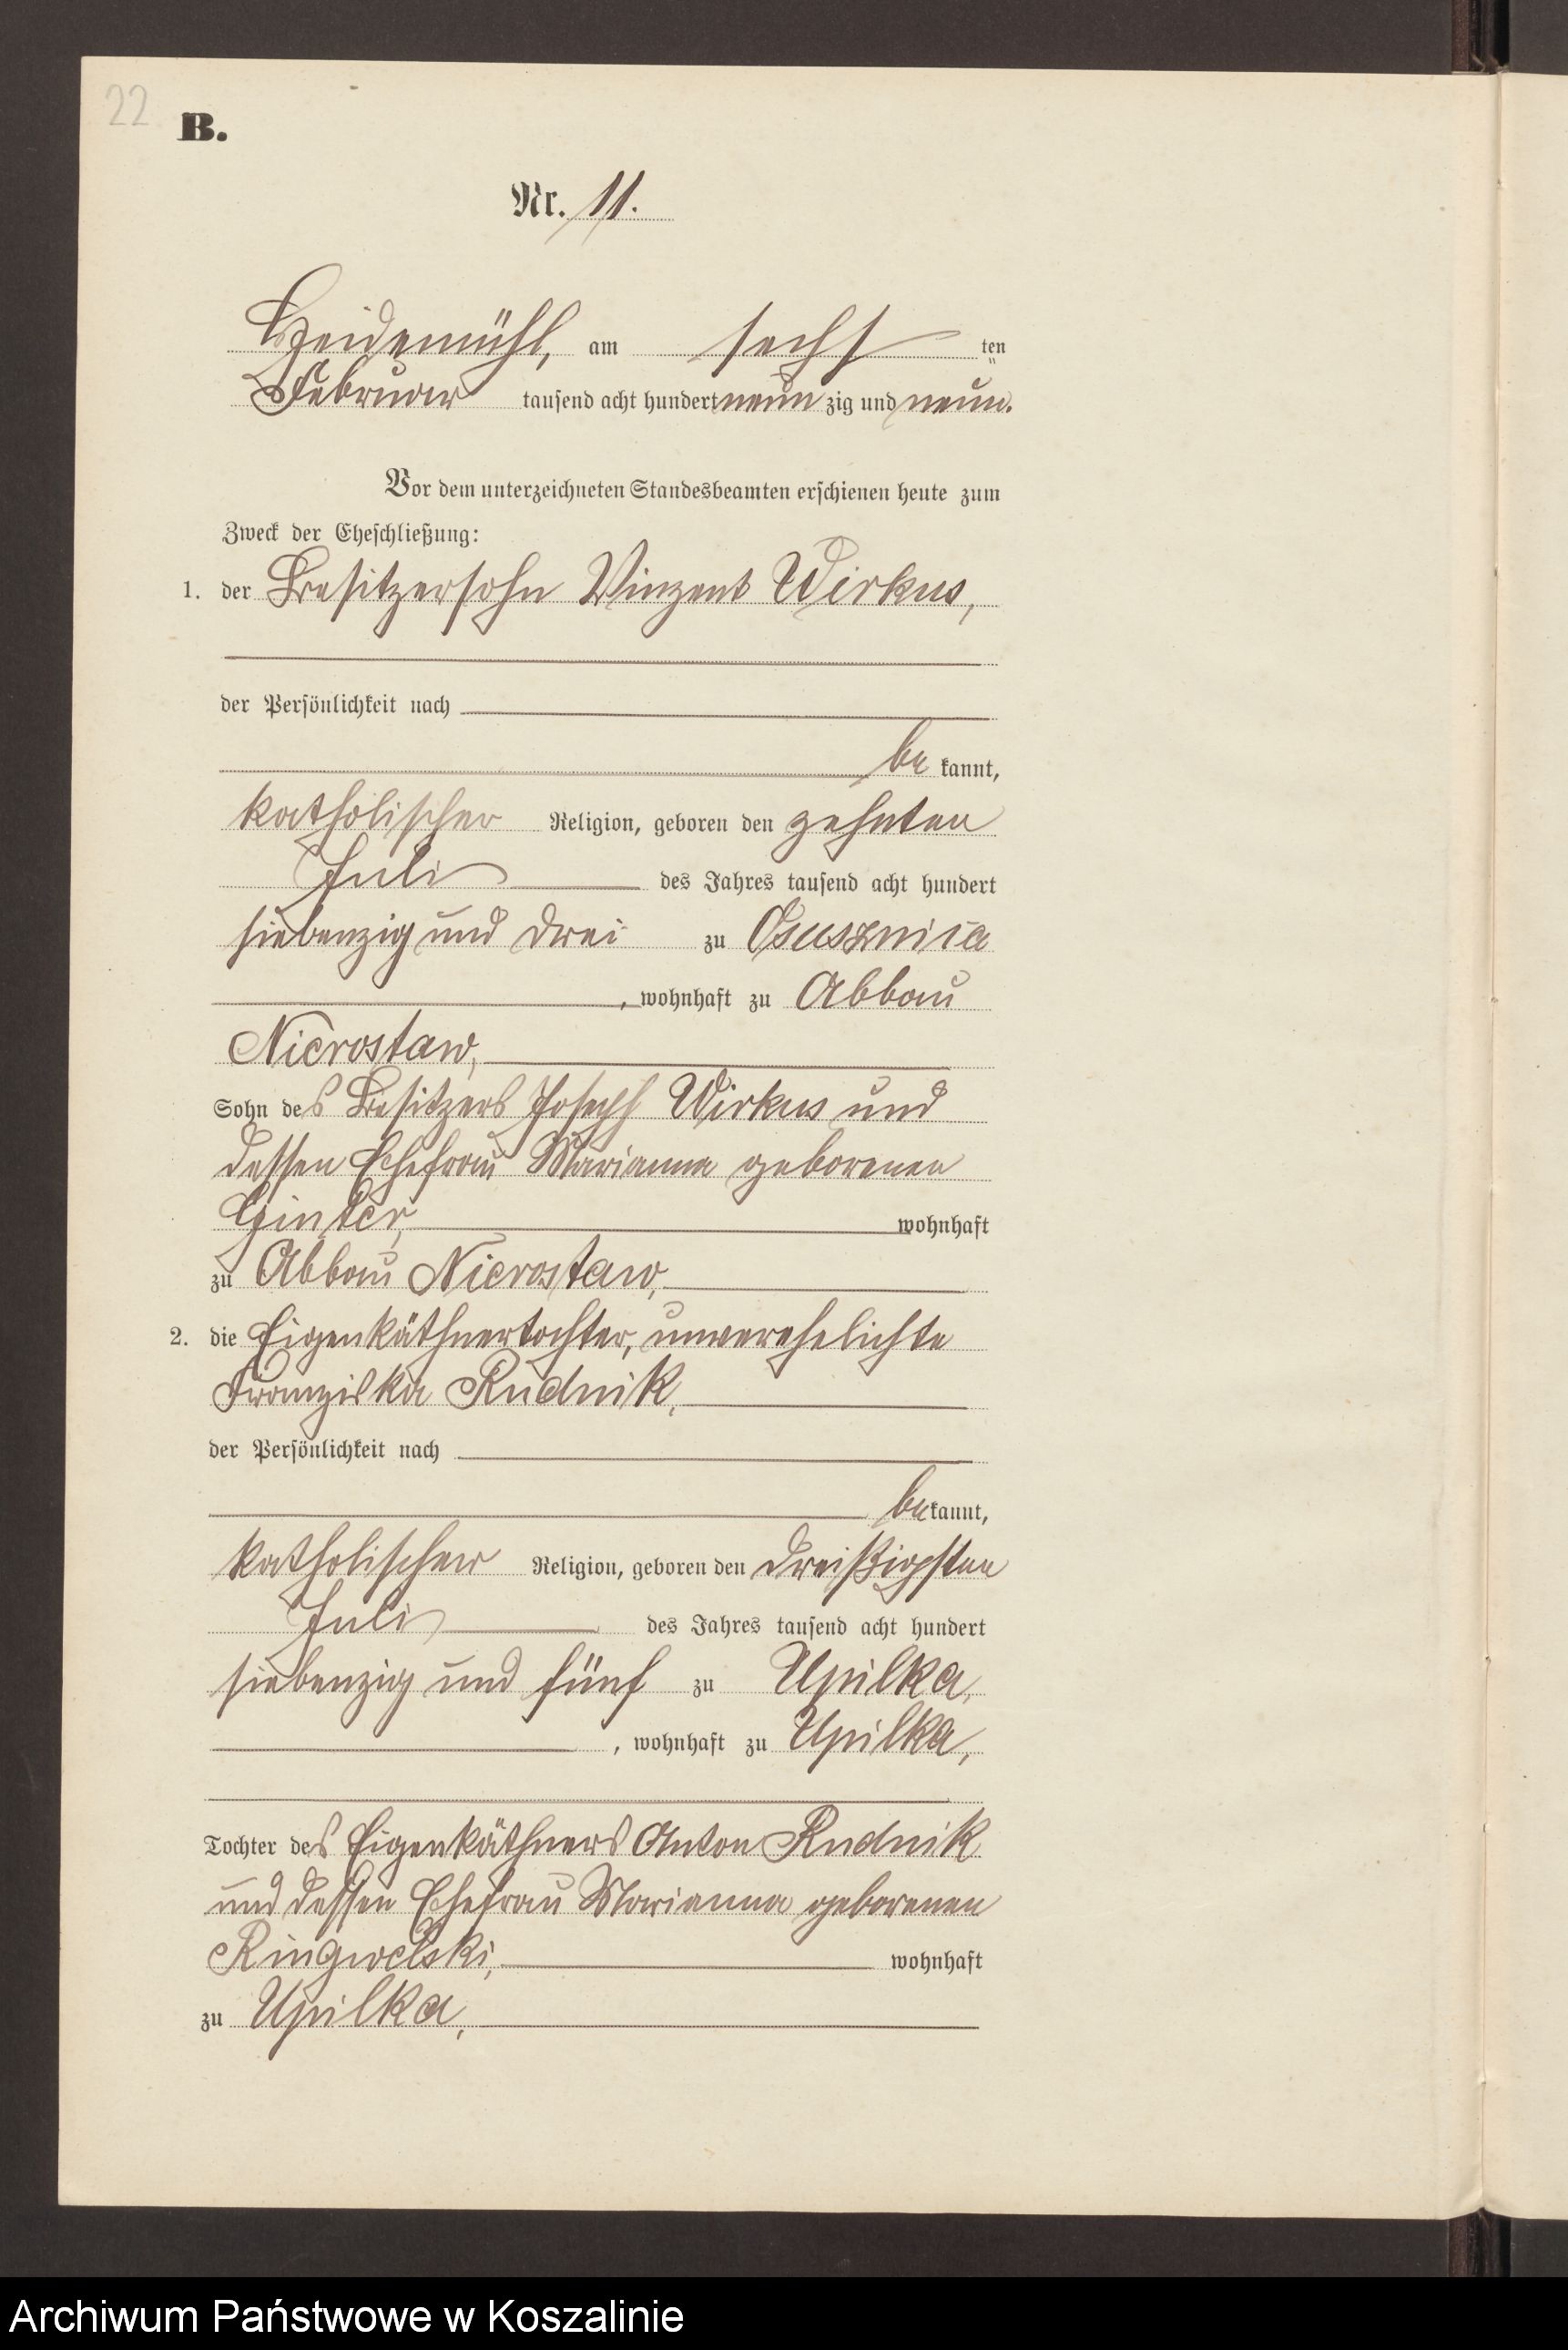 22
B.
Nr. 11.
Heidemühl, am sechs ten
Februar tausend acht hundert neun zig und neun.
Vor dem unterzeichneten Standesbeamten erschienen heute zum
Zweck der Eheschließung:
1. der Besitzersohn Vinzent Wirkus,
der Persönlichkeit nach
be kannt,
katholischer Religion, geboren den zehnten
Juli des Jahres tausend acht hundert
siebenzig und drei zu Osusznica
, wohnhaft zu Abbau
Nierostaw,
Sohn des Besitzers Joseph Wirkus und
dessen Ehefrau Marianna geborenen
Ginter, wohnhaft
zu Abbau Nierostaw,
2. die Eigenkäthnertochter, unverehelichte
Franziska Rudnik,
der Persönlichkeit nach
be kannt,
katholischer Religion, geboren den dreißigsten
Juli des Jahres tausend acht hundert
siebenzig und fünf zu Upilka,
, wohnhaft zu Upilka,
Tochter des Eigenkäthners Anton Rudnik
und dessen Ehefrau Marianna geborenen
Ringwelski, wohnhaft
zu Upilka,
Archiwum Państwowe w Koszalinie